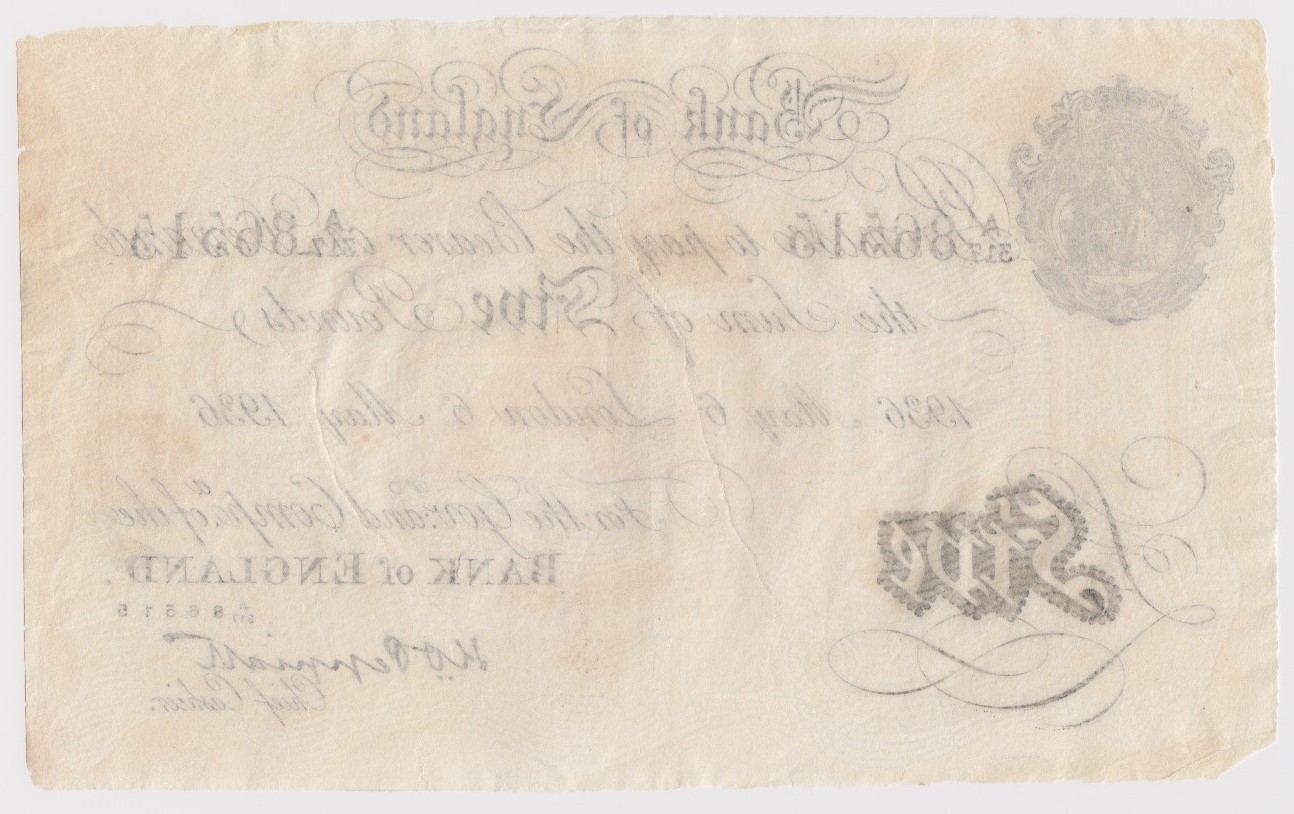 Bank of England
A/317 86515 to pay the Bearer on A/317 86515 Demand
the Sum of Five Pounds
1936 May 6 London 6 May 1936
For the Govr. and Compa. of the
BANK of ENGLAND.
A/317 86515
Five
K.O. Peppiatt
Chief Cashier.